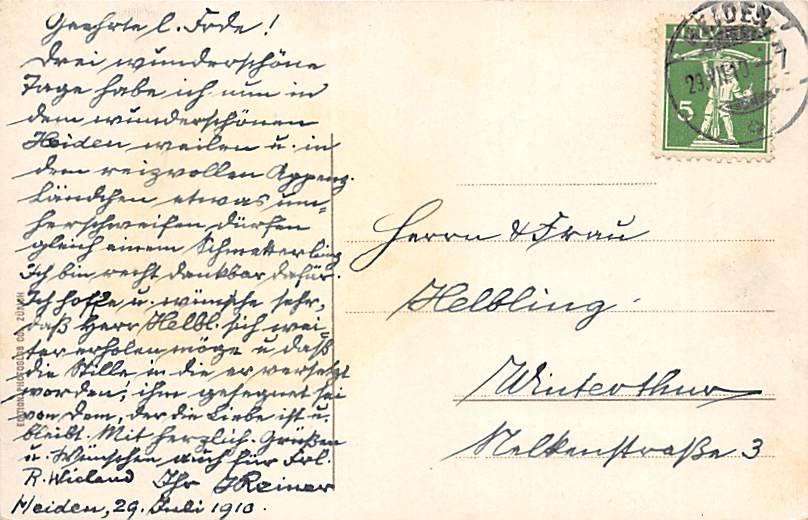 Geehrte l. Frde!
Drei wunderschöne
Tage habe ich nun in
dem wunderschönen
Heiden weilen u. in
dem reizvollen Appenz.
Ländchen etwas um=
herschweifen dürfen
gleich einem Schmetterling
Ich bin recht dankbar dafür.
Ich hoffe u. wünsche sehr,
daß Herr Helbl. sich wei
ter erholen möge u daß
die Stille in die er versetzt
worden, ihm gesegnet sei
von Dem, der die Liebe ist u.
bleibt. Mit herzlich. Grüßen
u. Wünschen auch für Frl.
R. Wieland Ihr JReiner
Heiden, 29. Juli 1910.
EDITION PHOTOGLOB CO. ZÜRICH
HEIDEN
29.VII.10.
5
Herrn & Frau
Helbling.
Winterthur
Nelkenstraße 3